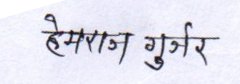 हेमराज गुर्जर